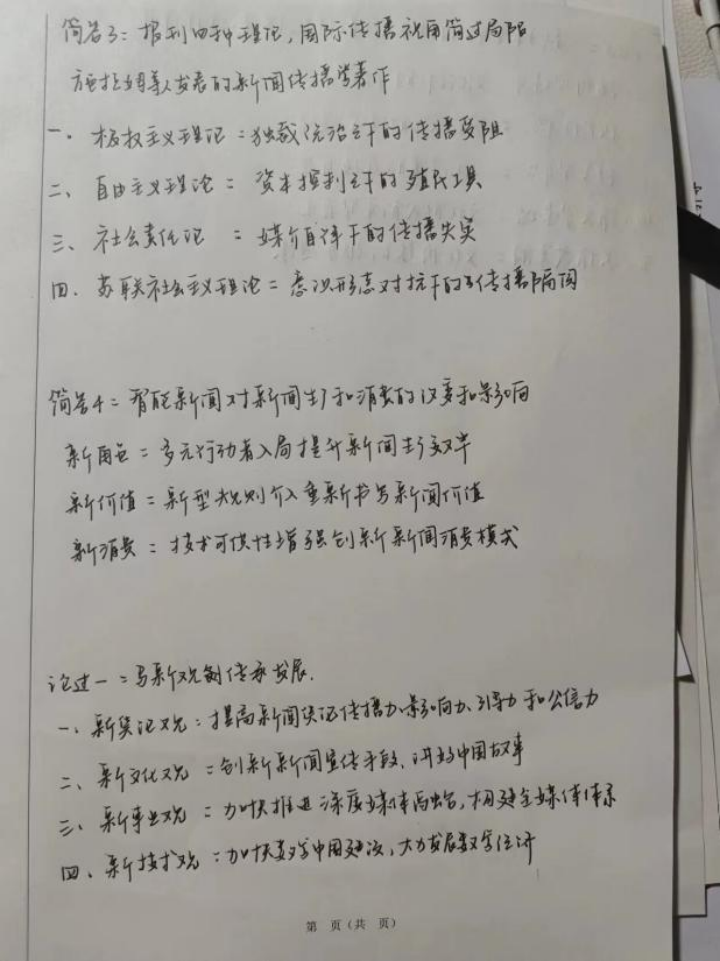 简答3：报刊四种理论，国际传播视角简述局限
施拉姆等人发表的新闻传播学著作
一、极权主义理论：独裁统治之下的传播受阻
二、自由主义理论：资本控制之下的殖民工具
三、社会责任论：媒介自律下的传播失实
四、苏联社会主义理论：意识形态对抗下的传播隔阂
简答4：智能新闻对新闻生产和消费的改变和影响
新角色：多元行动者入局提升新闻生产效率
新价值：新型规则介入重新书写新闻价值
新消费：技术可供性增强创新新闻消费模式
论述一：马新观创传承发展.
一、新舆论观：提高新闻舆论传播力、影响力、引导力和公信力
二、新文化观：创新新闻宣传手段、讲好中国故事
三、新事业观：加快推进深度媒体融合，构建全媒体体系
四、新技术观：加快数字中国建设，大力发展数字经济
第 页（共 页）